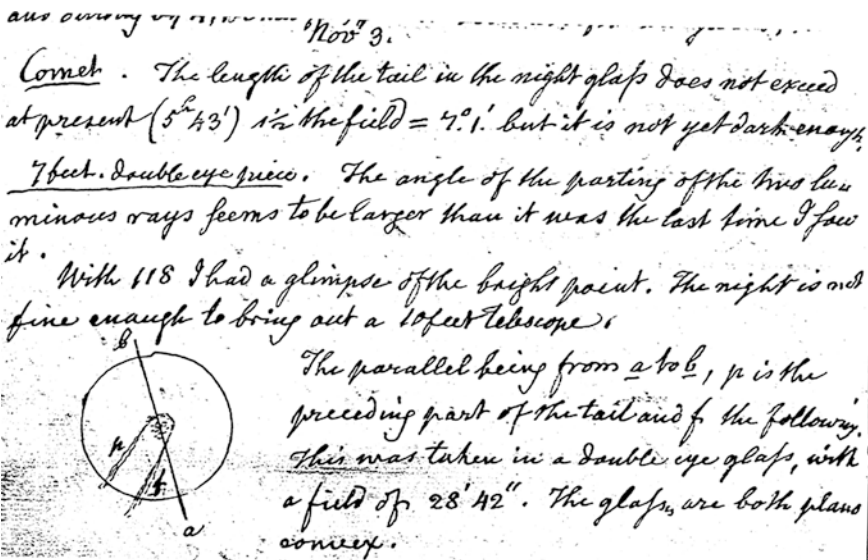 Nov.r 3.
Comet. The length of the tail in the night glass does not exceed
at present (5h 43') 1½ the field = 7°.1' but it is not yet dark enough,
7 feet. double eye piece. The angle of the parting of the two lu=
minous rays seems to be larger than it was the last time I saw
it.
With 118 I had a glimpse of the bright point. The night is not
fine enough to bring out a 10 feet telescope.
b
The parallel being from a to b, p is the
preceding part of the tail and f the following.
This was taken in a double eye glass, with
a field of 28' 42". The glasses are both plano
convex.
p
f
a